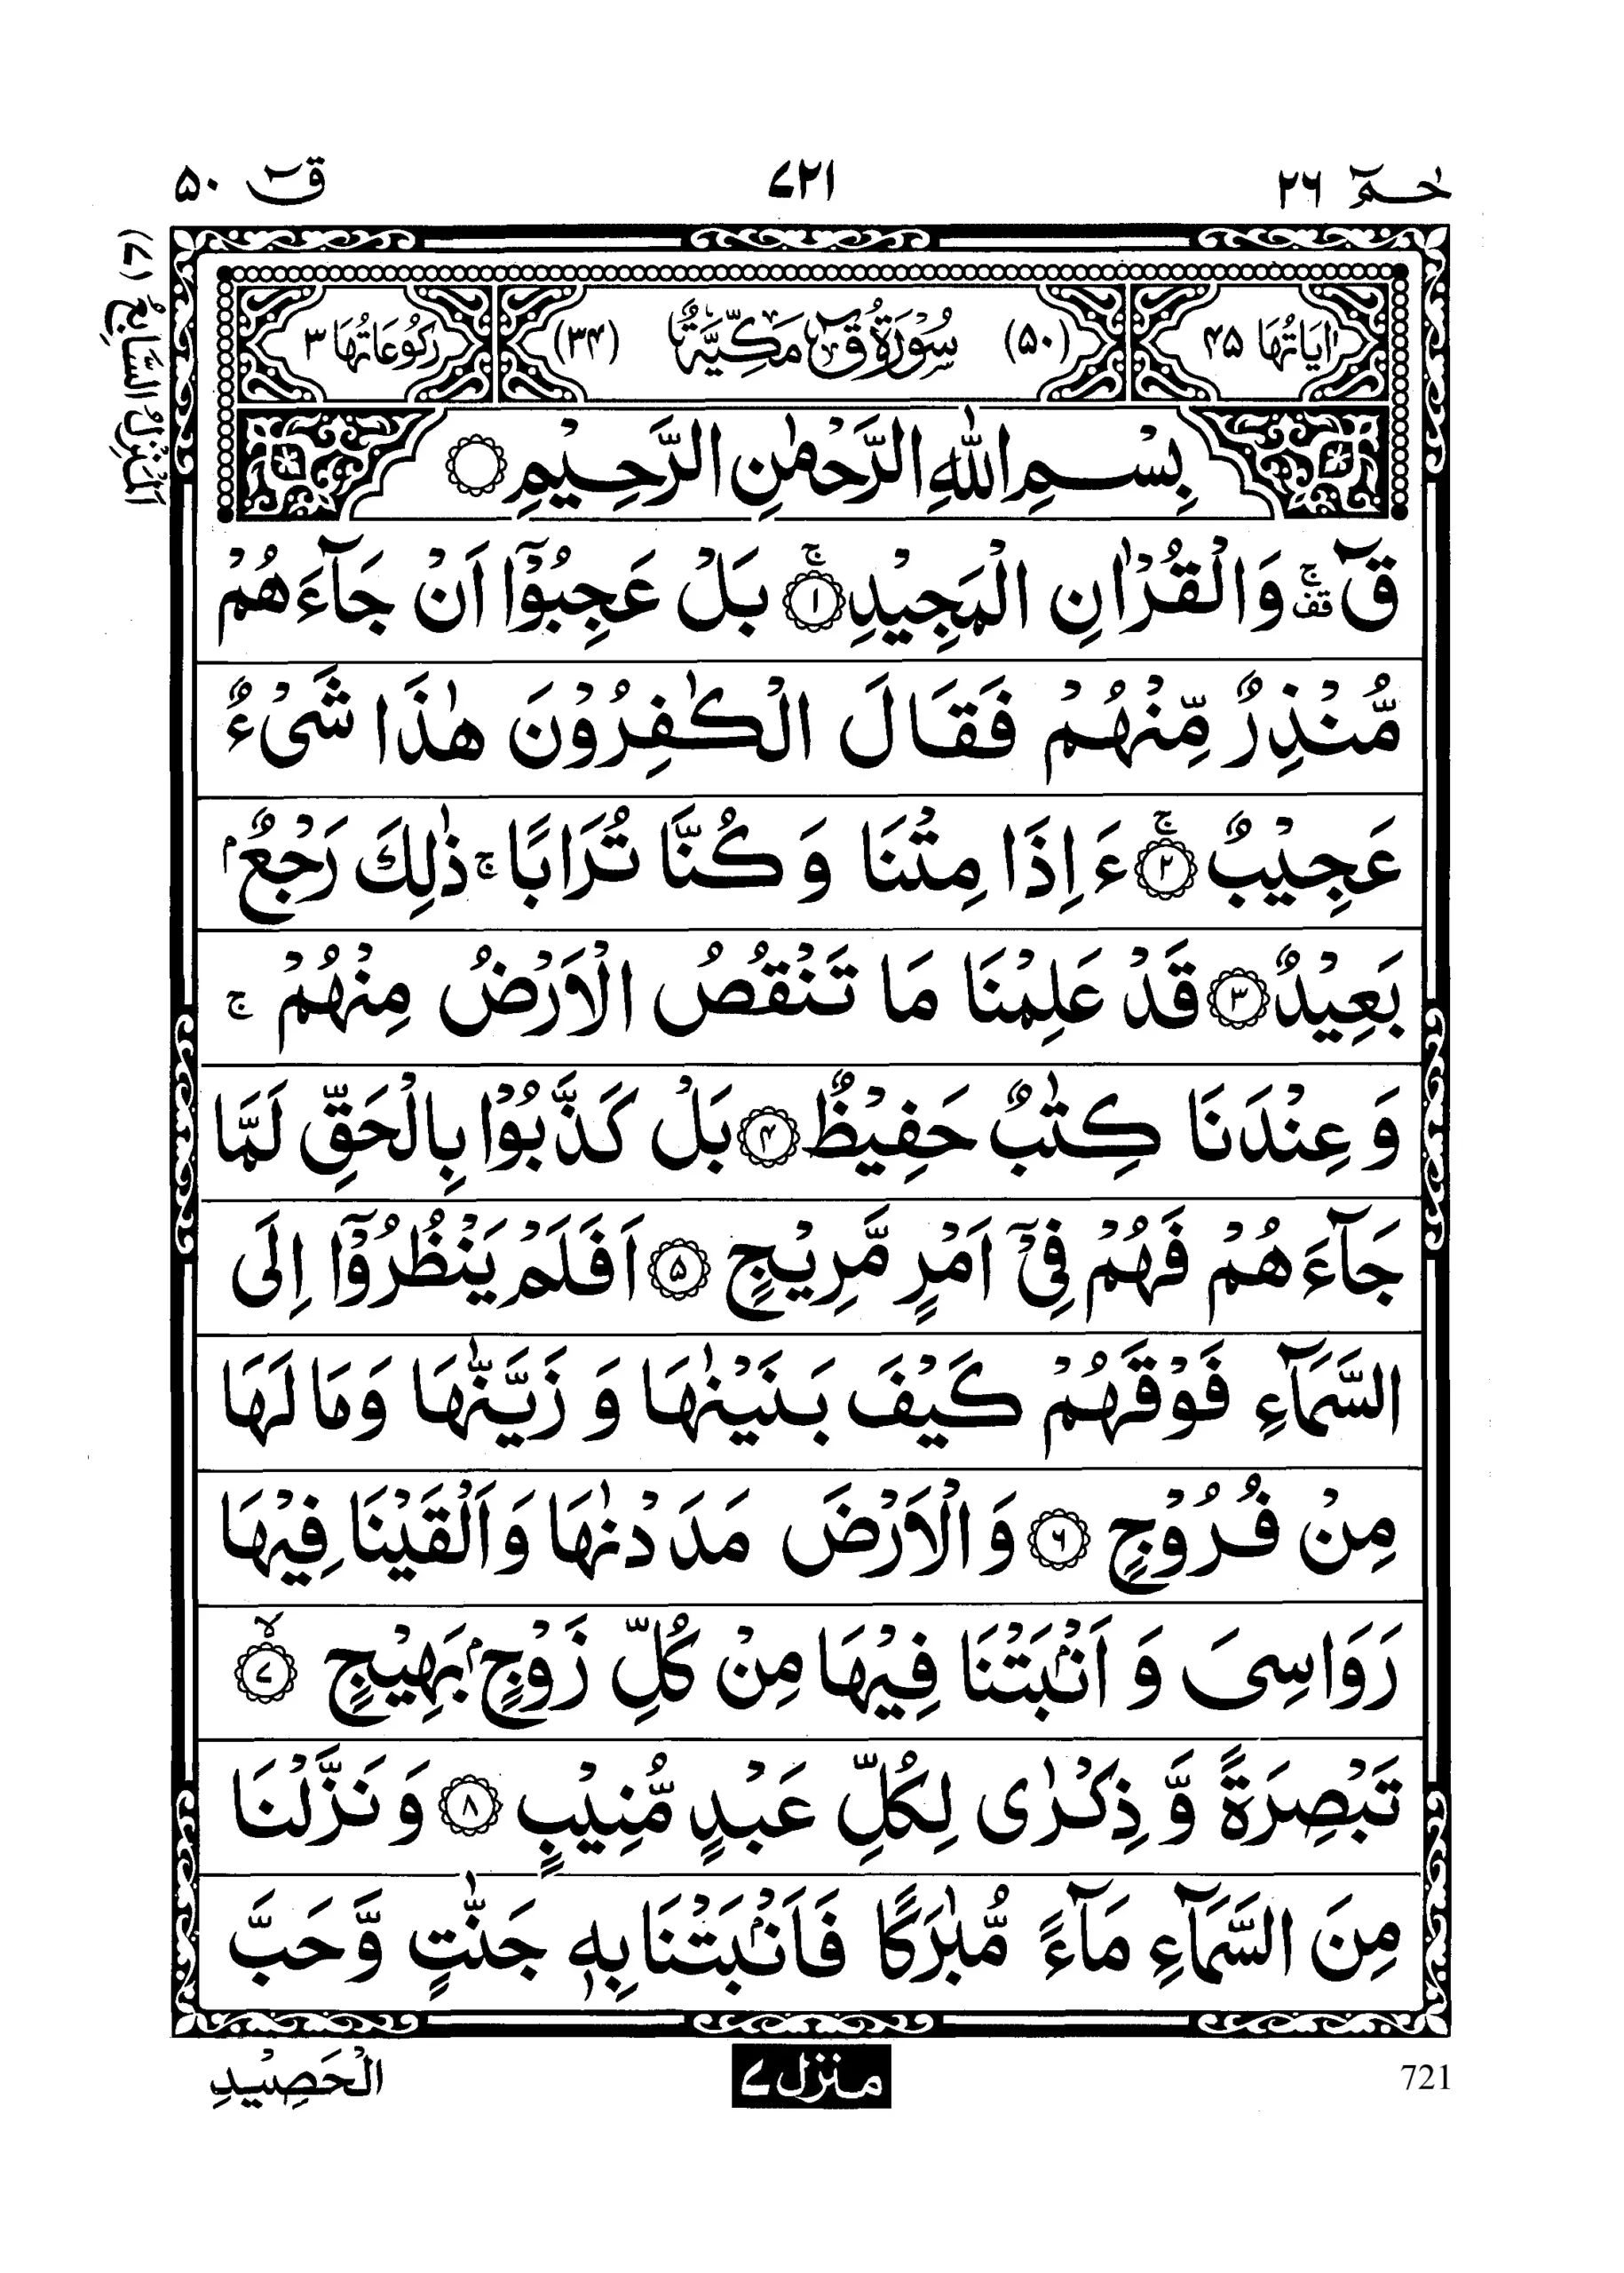 حٰمٓ ٢٦
٧٢١
قٓ ٥٠
اَلْمَنْزِلُ السَّابِعُ (٧)
اٰيَاتُهَا ٤٥
(٥٠) سُوْرَةُ قٓ مَكِّيَّةٌ (٣٤)
رُكُوْعَاتُهَا ٣
بِسْمِ اللّٰهِ الرَّحْمٰنِ الرَّحِيْمِ ۝
قٓ ۚ قف وَالْقُرْاٰنِ الْمَجِيْدِ ۝١ۚ بَلْ عَجِبُوْٓا اَنْ جَآءَهُمْ
مُّنْذِرٌ مِّنْهُمْ فَقَالَ الْكٰفِرُوْنَ هٰذَا شَىْءٌ
عَجِيْبٌ ۝٢ۚ ءَاِذَا مِتْنَا وَ كُنَّا تُرَابًا ۚ ذٰلِكَ رَجْعٌۢ
بَعِيْدٌ ۝٣ قَدْ عَلِمْنَا مَا تَنْقُصُ الْاَرْضُ مِنْهُمْ ۚ
وَ عِنْدَنَا كِتٰبٌ حَفِيْظٌ ۝٤ بَلْ كَذَّبُوْا بِالْحَقِّ لَمَّا
جَآءَهُمْ فَهُمْ فِىْٓ اَمْرٍ مَّرِيْجٍ ۝٥ اَفَلَمْ يَنْظُرُوْٓا اِلَى
السَّمَآءِ فَوْقَهُمْ كَيْفَ بَنَيْنٰهَا وَ زَيَّنّٰهَا وَمَا لَهَا
مِنْ فُرُوْجٍ ۝٦ وَالْاَرْضَ مَدَدْنٰهَا وَاَلْقَيْنَا فِيْهَا
رَوَاسِىَ وَ اَنْۢبَتْنَا فِيْهَا مِنْ كُلِّ زَوْجٍۢ بَهِيْجٍ ۝٧ۙ
تَبْصِرَةً وَّ ذِكْرٰى لِكُلِّ عَبْدٍ مُّنِيْبٍ ۝٨ وَ نَزَّلْنَا
مِنَ السَّمَآءِ مَآءً مُّبٰرَكًا فَاَنْۢبَتْنَا بِهٖ جَنّٰتٍ وَّحَبَّ
721
منزل ٧
الْحَصِيْدِ